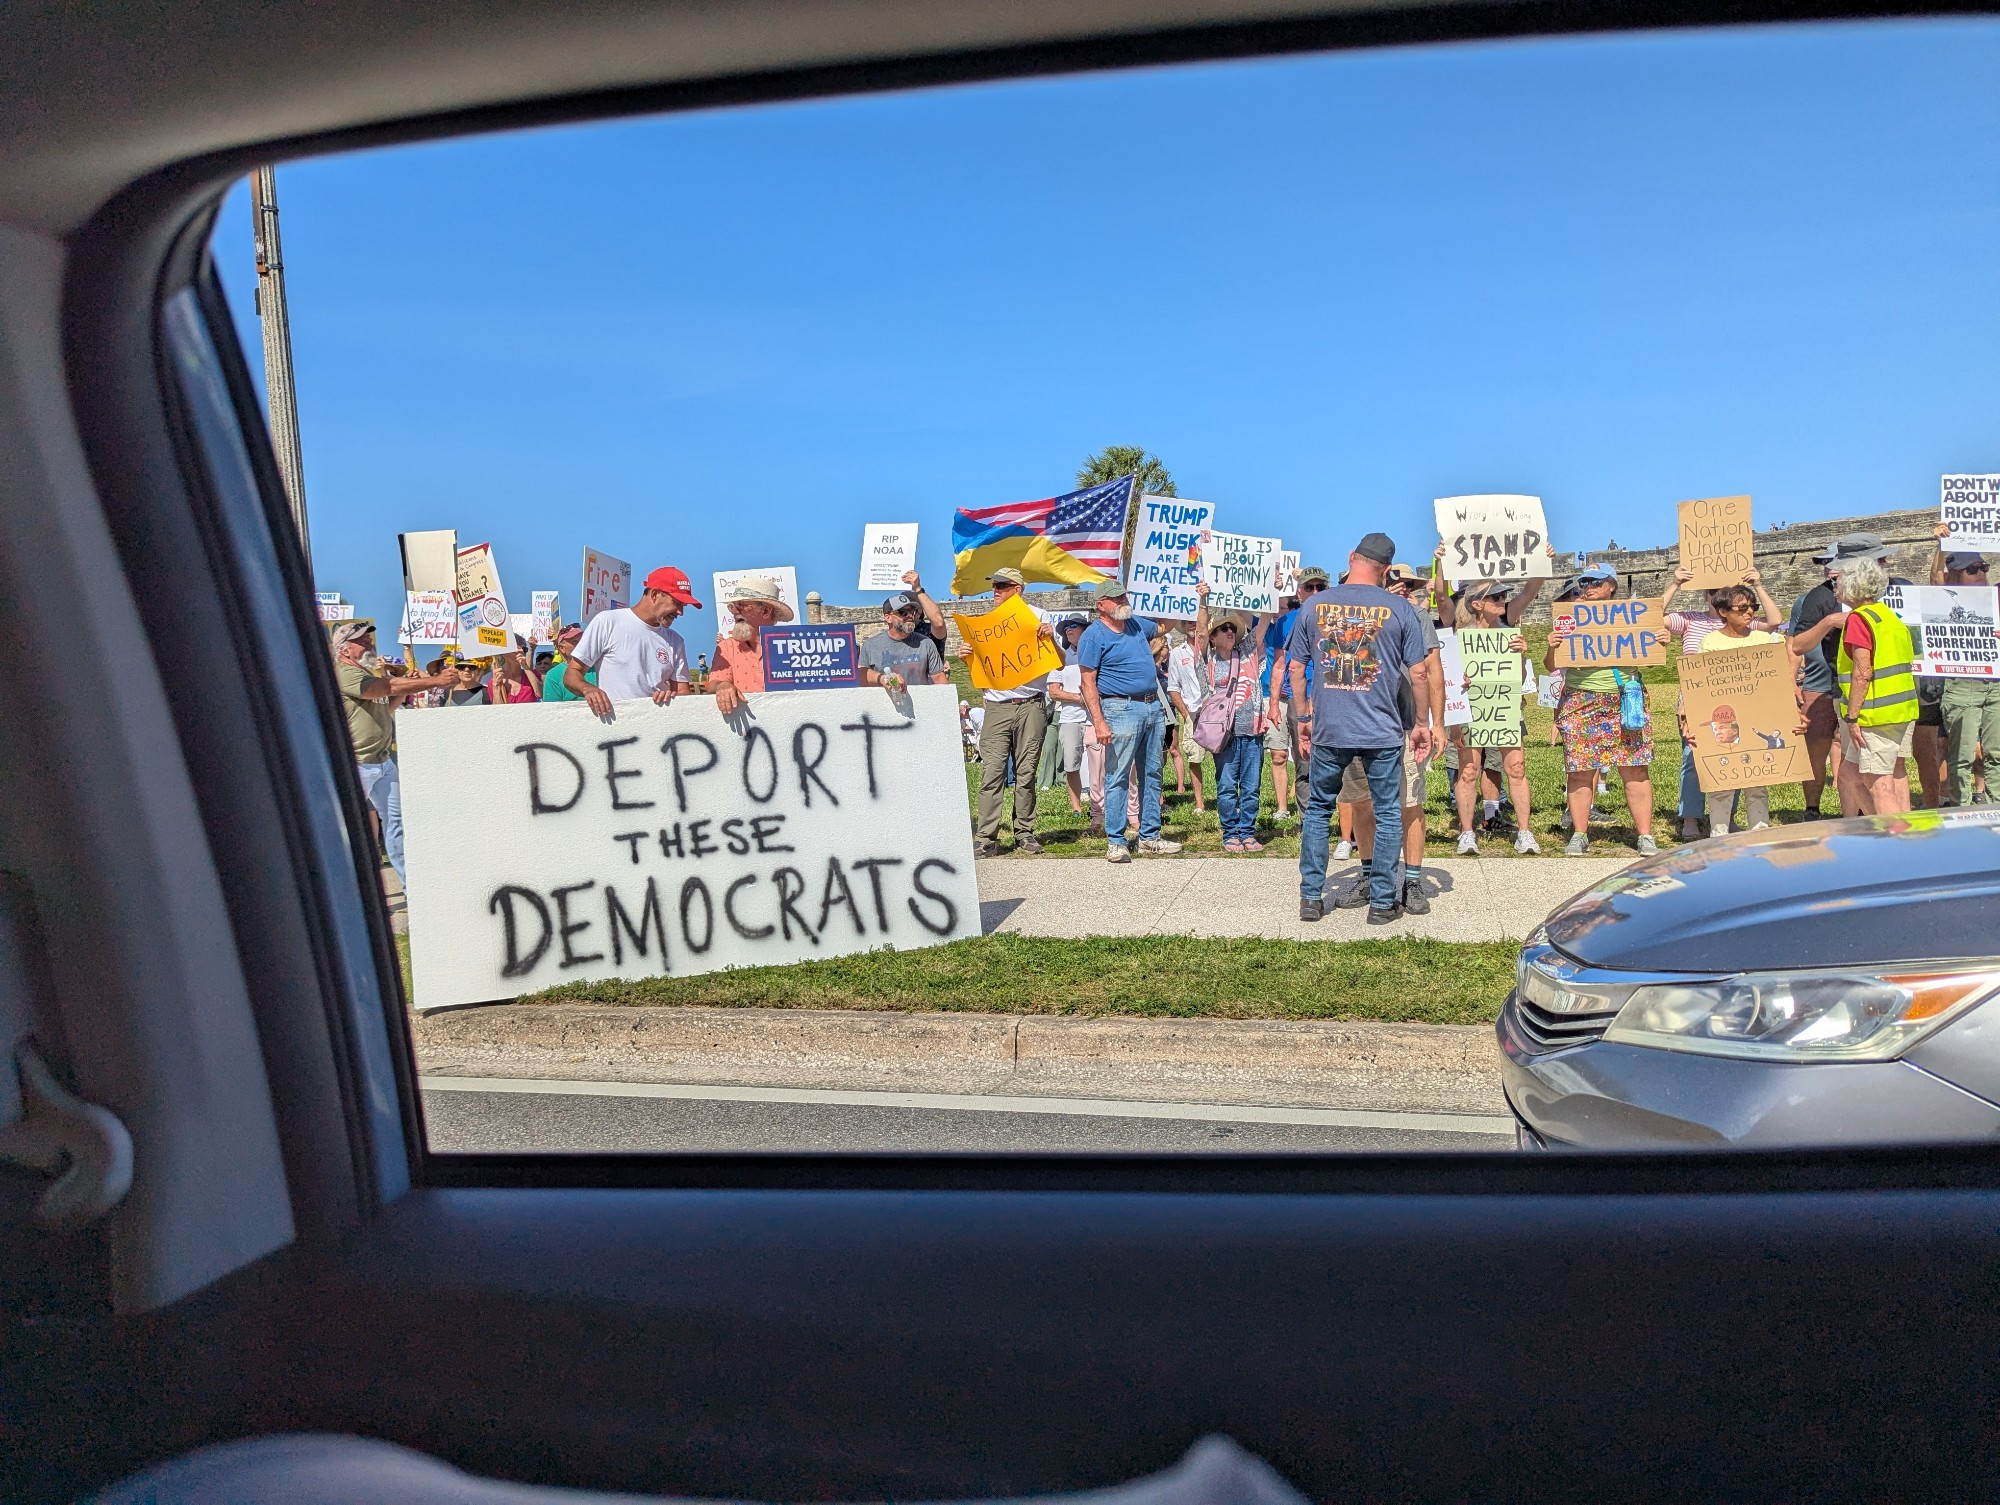 DEPORT
THESE
DEMOCRATS
TRUMP
-2024-
TAKE AMERICA BACK
RIP
NOAA
Fire
HAVE
YOU
NO
SHAME?
IMPEACH
TRUMP
to bring
REAL
DEPORT
MAGA
TRUMP
-
MUSK
ARE
PIRATES
&
TRAITORS
THIS IS
ABOUT
TYRANNY
VS
FREEDOM
TRUMP
Wrong is Wrong
STAND
UP!
HANDS
OFF
OUR
DUE
PROCESS
STOP
DUMP
TRUMP
One
Nation
Under
FRAUD
The Fascists are
coming!
The Fascists are
coming!
MAGA
SS DOGE
DONT W
ABOUT
RIGHTS
OTHE
AND NOW WE
SURRENDER
TO THIS?
YOU'RE WEAK